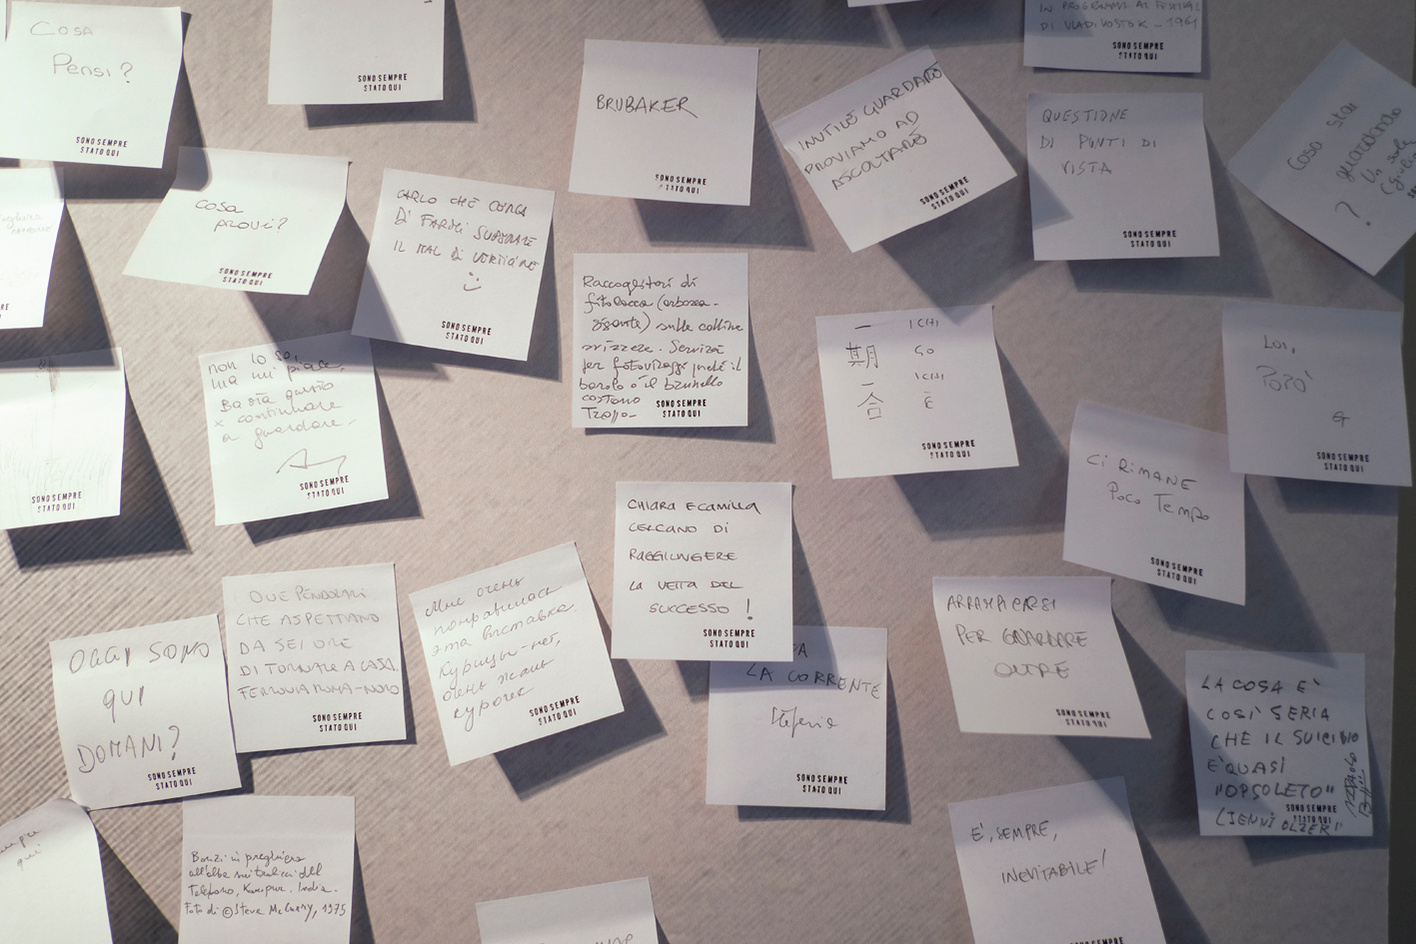 COSA
Pensi?
SONO SEMPRE
STATO QUI
SONO SEMPRE
STATO QUI
BRUBAKER
SONO SEMPRE
STATO QUI
INUTILE GUARDARE
PROVIAMO AD
ASCOLTARE
SONO SEMPRE
STATO QUI
DI VLADIVOSTOK - 1961
SONO SEMPRE
STATO QUI
QUESTIONE
DI PUNTI DI
VISTA
SONO SEMPRE
STATO QUI
Cosa stai
guardando
?
Un sole
COSA
provi?
SONO SEMPRE
STATO QUI
CARLO CHE CERCA
DI FARMI SUPERARE
IL MAL DI VERTIGINE
:)
SONO SEMPRE
STATO QUI
Raccoglitori di
fitolacca (erbacea -
gigante) sulle colline
svizzere. Servirà
per fotovoltaggi perché il
barolo o il brunello
costano
Troppo-
SONO SEMPRE
STATO QUI
一 ICHI
期 GO
一 ICHI
合 E
SONO SEMPRE
STATO QUI
LUI,
POPÒ
G
SONO SEMPRE
STATO QUI
non lo so,
ma mi piace.
Basta questo
x continuare
a guardare.
SONO SEMPRE
STATO QUI
SONO SEMPRE
STATO QUI
Ci RIMANE
POCO TEMPO
SONO SEMPRE
STATO QUI
CHIARA E CAMILLA
CERCANO DI
RAGGIUNGERE
LA VETTA DEL
SUCCESSO !
SONO SEMPRE
STATO QUI
DUE PENDOLARI
CHE ASPETTANO
DA SEI ORE
DI TORNARE A CASA.
FERROVIA ROMA-NORD
SONO SEMPRE
STATO QUI
Мне очень
понравилась
эта выставка.
Курицы-нет,
очень жаль
курочек
SONO SEMPRE
STATO QUI
OGGI SONO
QUI
DOMANI?
SONO SEMPRE
STATO QUI
LA CORRENTE
Stefania
SONO SEMPRE
STATO QUI
ARRAMPICARSI
PER GUARDARE
OLTRE
SONO SEMPRE
STATO QUI
LA COSA E'
COSÌ SERIA
CHE IL SUICIDIO
E' QUASI
"OPSOLETO"
SONO SEMPRE
STATO QUI
sempre
qui
Bonzi in preghiera
all'alba sui tralicci del
Telefono, Kanpur, India.
Foto di © Steve McCurry, 1975
E', SEMPRE,
INEVITABILE!
SONO SEMPRE